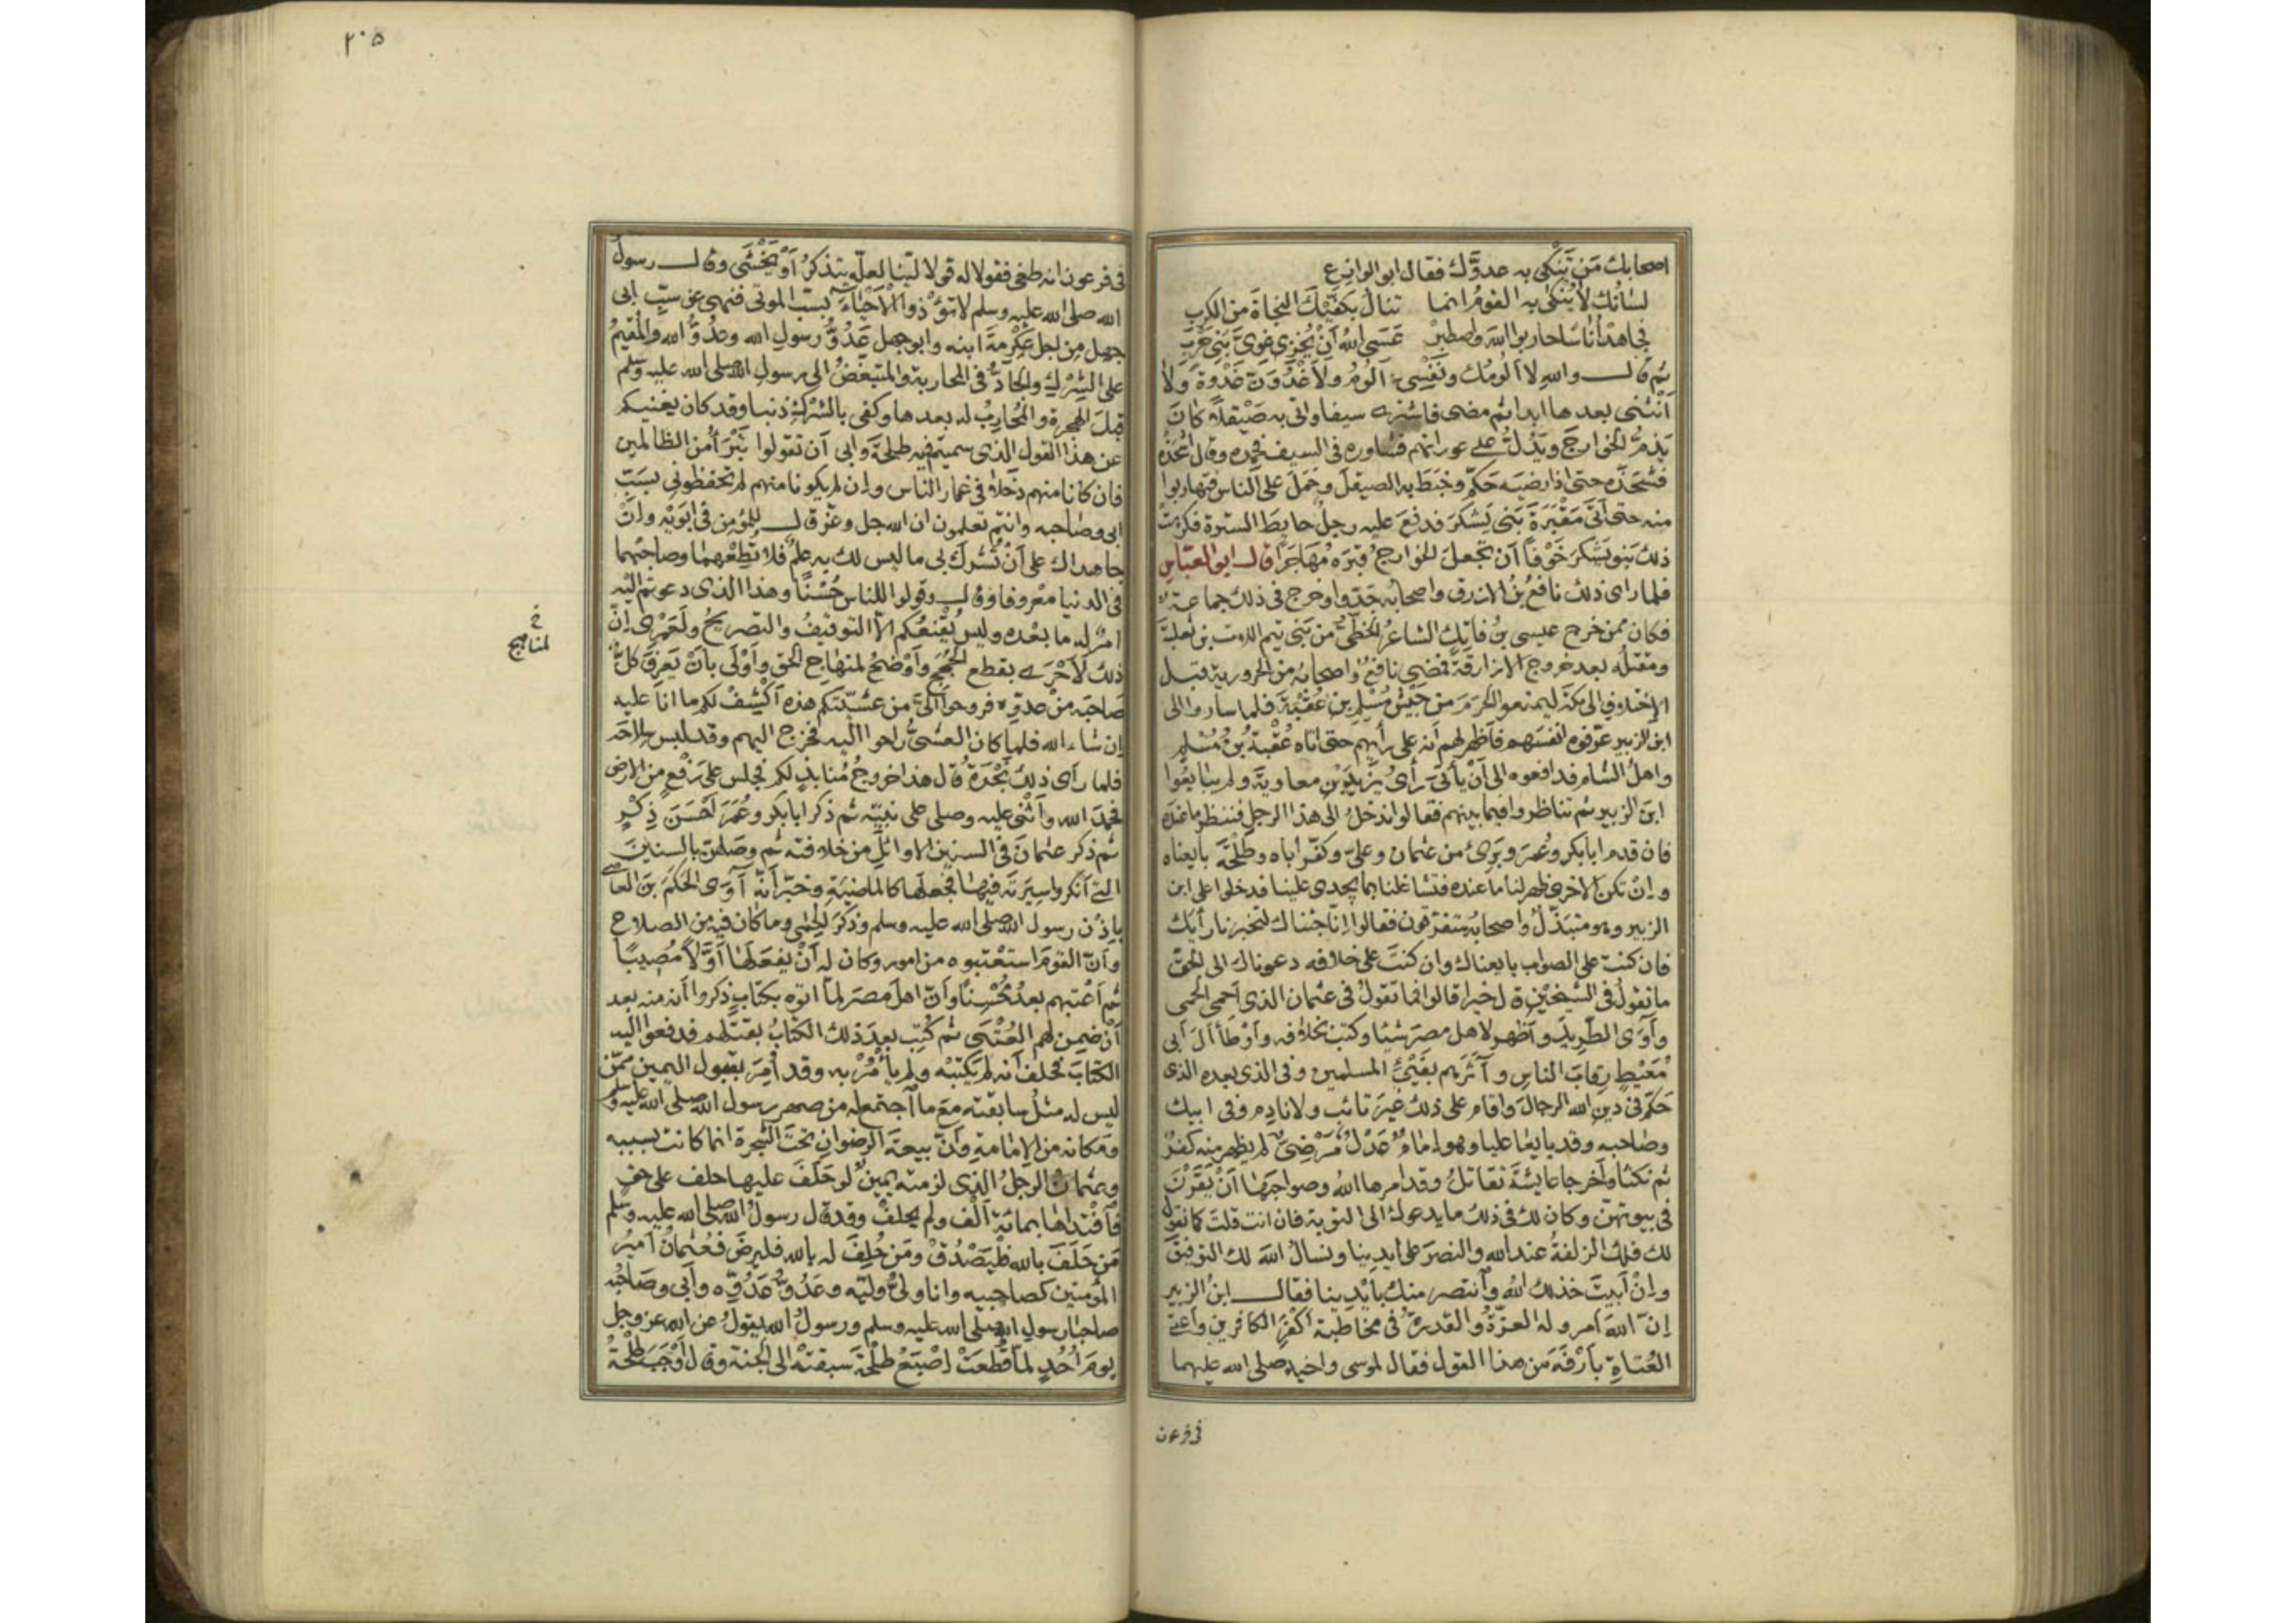 اصحابك مَن تَنْكِى به عدوَّك فقال ابو الوازِعِ
لسانُك لا يُنكى به القومُ انما تنالُ بكفَّيْكَ النجاةَ من الكربِ
فجاهد أناسًا حاربوا الله واصطبِرْ عَسَى اللهُ أنْ يُخزِى غَوِىَّ بَنِى حَرْبِ
ثم قال والله لا الومُك ونَفْسِى الومُ ولأغدُوَنّ غَدْوةً ولا
أنْثنى بعدها ابدا ثم مضى فاشترى سيفا واتى به صَيْقلًا كان
يذمُّ الخوارجَ ويَدُلُّ على عوراتهم فشاوره فى السيف فحمده وقال اشحَذْه
فشحَذَه حتى اذا رضيَه حَكَّم وخبَطَ به الصيقلَ وحَمَل على الناس فتهاربوا
منه حتى أتَى مَقْبَرةَ بَنى يَشكرَ فدفعَ عليه رجلٌ حايطَ السترة فكرهت
ذلك بنو يَشكرَ خَوْفًا أن تجعلَ الخوارجُ قبرَه مُهَاجَرًا قال ابو العبّاسِ
فلما راى ذلك نافعُ بنُ الازرق واصحابُه جَدّوا وخرج فى ذلك جماعةٌ
فكان ممن خرج عيسى بنُ فاتِكٍ الشاعرُ الخَطِّىُّ من بَنى تيم اللات بن ثعلبةَ
ومقتلُه بعد خروج الازارقة فمضى نافعٌ واصحابُه من الحرورية قبل
الاختلافِ الى مكةَ ليمنعوا الحَرَمَ من جَيْشِ مُسْلِمِ بنِ عُقْبَةَ فلما سارُوا الى
ابن الزبير عرّفوه انفسَهم فأظهر لهم أنه على رأيهم حتى اتاه عُقْبةُ بنُ مُسْلمٍ
واهلُ الشام فدافعوه الى أنْ يأتىَ رأىُ يَزيدَ بنِ معاويةَ ولم يبايعُوا
ابنَ الزبير ثم تناظروا فيما بينهم فقالوا ندخلُ الى هذا الرجل فننظر ما عنده
فان قدم ابا بكر وعُمَرَ وبَرِئَ من عثمانَ وعلىٍّ وكفّر أباه وطَلْحَةَ بايعناه
وإنْ تكن الأخرى ظهر لنا ما عنده فتشاغلنا بما يُجدى علينا فدخلوا على ابن
الزبير وهو متبذّلٌ واصحابُه متفرّقون فقالوا إنّا جئناك لتخبرنا رأيَك
فان كنتَ على الصواب بايعناك وان كنتَ على خلافه دعوناك الى الحق
ما تقولُ فى الشيخيْن قال خيرا قالوا فما تقولُ فى عثمان الذى احمى الحمى
وآوَى الطَّرِيدَ وأظهر لاهل مصرَ شيئا وكتبَ بخلافه وأوْطأ آلَ أبى
مُعَيْطٍ رِقابَ الناسِ وآثَرَهم بفَىْءِ المسلمين وفى الذى بعده الذى
حَكّم فى دينِ الله الرجالَ واقام على ذلك غيرَ تائبٍ ولا نادِم وفى ابيك
وصاحبِه وقد بايعا عليا وهو إمامٌ عَدْلٌ مَرْضِىٌّ لم يظهر منه كفرٌ
ثم نكثا وأخرجا عايشةَ تقاتلُ وقد أمرها اللهُ وصواحبَها أنْ يَقَرْنَ
فى بيوتهنّ وكان لك فى ذلك ما يدعوك الى التوبة فان انت قلتَ كما نقولُ
لك فلك الزلفةُ عند الله والنصرَ على ايدينا ونسألُ اللهَ لك التوفيقَ
وإنْ أبيتَ خذلك اللهُ وانتصر منك بأيْدينا فقال ابنُ الزبير
إنّ اللهَ أمر وله العزّةُ والقدرةُ فى مخاطبة أكفرِ الكافرين وأعتى
العُتاةِ بأرْفَةَ من هذا القول فقال لموسى واخيه صلى الله عليهما
فى فرعون
٢٠٥
فى فرعون انه طغى فقولا له قولا لَيّنا لعلّه يتذكرُ أوْ يَخْشَى وقال رسولُ
الله صلى الله عليه وسلم لا تُؤْذوا الأحْياءَ بسبّ الموتى فنهى عن سبِّ ابى
جهل من اجل عِكْرمةَ ابنه وابو جهل عَدُوُّ رسولِ الله وعدُوُّ الله والمُقيمُ
على الشِّرْكِ والجادُّ فى المحاربة والمتبغّضُ الى رسولِ الله صلى الله عليه وسلم
قبلَ الهجرة والمُحارِبُ له بعدها وكفى بالشِّركِ ذنبا وقد كان يغنيكم
عن هذا القول الذى سميتم فيه طلحةَ وابى أن تقولوا نَتبرَّأُ من الظالمين
فان كانا منهم دخلا فى غمار الناس وان لم يكونا منهم لم تحفظونى بسَبّ
ابى وصاحبه وانتم تعلمون ان الله جل وعزّ قال للمؤمن فى ابَوَيْه وانْ
جاهداك على أنْ تُشركَ بى ما ليس لك به علمٌ فلا تُطِعْهما وصاحبْهما
فى الدنيا معْروفا وقال وقولوا للناس حُسْنًا وهذا الذى دعوتم اليه
امرٌ له ما بعْده وليس يُقنعُكم الا التوقيفُ والتصريحُ ولَعَمْرِى انّ
ذلك لأحْرَى بقطع الحُجَجِ وأوْضحُ لمنهاجِ الحَق وأوْلَى بأن يَعرِفَ كلٌّ
خ
لمناهج
صَاحبَه من عدوّه فروحوا الىّ من عشيّتكم هذه أكْشِفْ لكم ما انا عليه
ان شاء الله فلما كان العشىُّ راحوا اليه فخرج اليهم وقد لبس سلاحَه
فلما رأى ذلك نَجْدةُ قال هذا خروجُ مُنابذٍ لكم فجلس على رَفْعٍ من الارض
فحمِدَ الله وأثْنى عليه وصلى على نبيّه ثم ذكر ابا بكر وعُمَرَ أحْسَنَ ذِكْرٍ
ثم ذكر عثمانَ فى السنين الاوائلِ من خلافته ثم وصَلهنّ بالسنين
التى أنكروا سِيرتَه فيها فجعلها كالماضيَةِ وخبّر أنّه آوَى الحَكمَ بنَ العاصى
باِذْن رسول الله صلى الله عليه وسلم وذَكرَ الحِمَى وما كان فيه من الصلاح
وأنّ القومَ استَعْتبوه من امورٍ وكان له أنْ يفعَلَها أوَّلًا مُصيبًا
ثم أعْتبهم بعدُ مُحْسِنًا وأنّ اهلَ مصرَ لمّا اتوه بكتابٍ ذكروا أنه منه بعد
أنْ ضمِن لهم العُتْبَى ثم كُتِبَ بعدَ ذلك الكتابُ بقتلهم فدفعوا اليه
الكتابَ فحلف أنه لم يَكتبْه ولم يأمُرْ به وقد أُمِرَ بقبول اليمين ممّن
ليس له مثلُ سابقته مَعَ ما اجتمع له من صهر رسول الله صلى الله عليه وسلم
ومَكانه من الإمامةِ وأنّ بيعةَ الرضوانِ تحتَ الشجرة انما كانت بسببه
وعثمانُ الرجلُ الذى لزمته يمينٌ لو حَلَفَ عليها حلف على حق
فافْتداها بمائة ألف ولم يحلفْ وقد قال رسولُ الله صلى الله عليه وسلم
مَن حَلَفَ بالله فليَصْدُقْ ومَن حُلِفَ له بالله فليرضَ فعُثمانُ أميرُ
المؤمنين كصاحبيه وانا وَلىُّ وليّه وعَدُوُّ عَدُوّه وأبى وصَاحبُه
صاحبا رسول الله صلى الله عليه وسلم ورسولُ الله يقولُ عن الله عز وجل
يومَ أُحُدٍ لمّا قُطعَتْ إصْبَعُ طلْحَةَ سبقتْه الى الجنة وقال أوْجَبَ طلْحَةُ